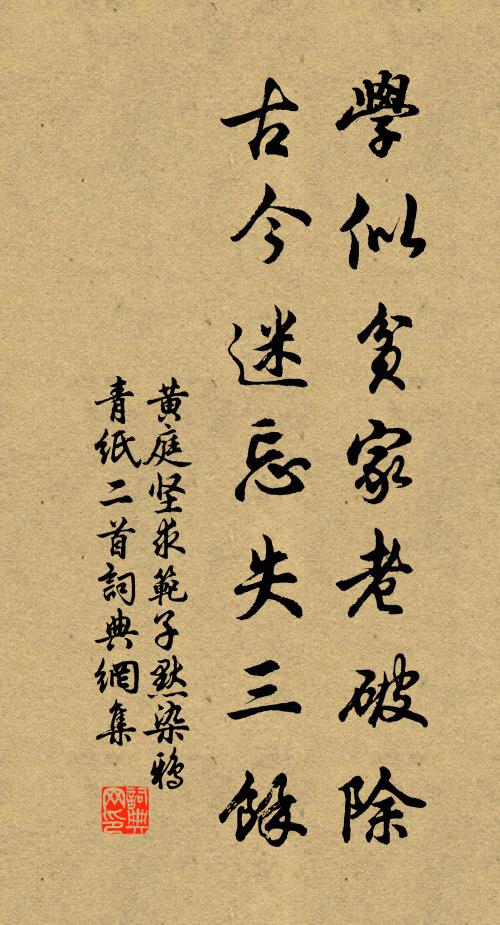 學似貧家老破除
古今迷忘失三餘
黄庭坚求範子默染鴉
青紙二首詞典網集
詞典
网印